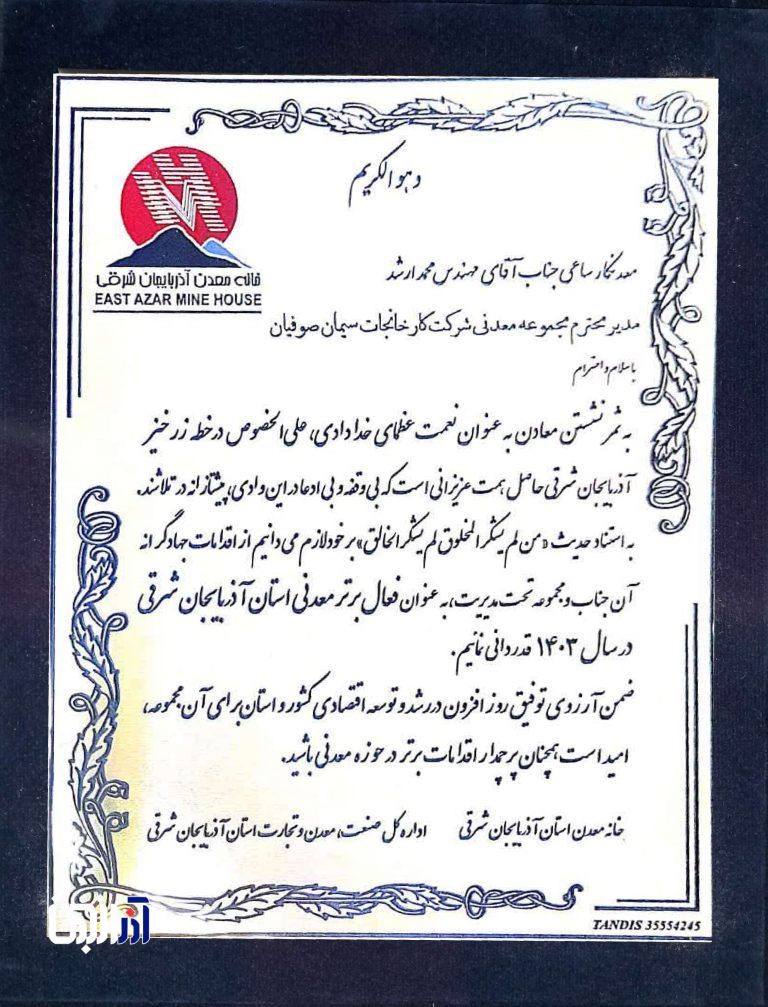 و هو الکریم
خانه معدن آذربایجان شرقی
EAST AZAR MINE HOUSE
معدنکار ساعی جناب آقای مهندس محمد ارشد
مدیر محترم مجموعه معدنی شرکت کارخانجات سیمان صوفیان
با سلام و احترام
به ثمر نشستن معادن به عنوان نعمت عظمای خدادادی، علی الخصوص در خطه زرخیز
آذربایجان شرقی حاصل همت عزیزانی است که بی وقفه و بی ادعا در این وادی، پیشتازانه در تلاشند.
به استناد حدیث «من لم یشکر المخلوق لم یشکر الخالق» بر خود لازم می دانیم از اقدامات جهادگرانه
آن جناب و مجموعه تحت مدیریت، به عنوان فعال برتر معدنی استان آذربایجان شرقی
در سال ۱۴۰۳ قدردانی نمائیم.
ضمن آرزوی توفیق روز افزون در رشد و توسعه اقتصادی کشور و استان برای آن مجموعه،
امید است همچنان پرچمدار اقدامات برتر در حوزه معدنی باشید.
خانه معدن استان آذربایجان شرقی اداره کل صنعت، معدن و تجارت استان آذربایجان شرقی
TANDIS 35554245